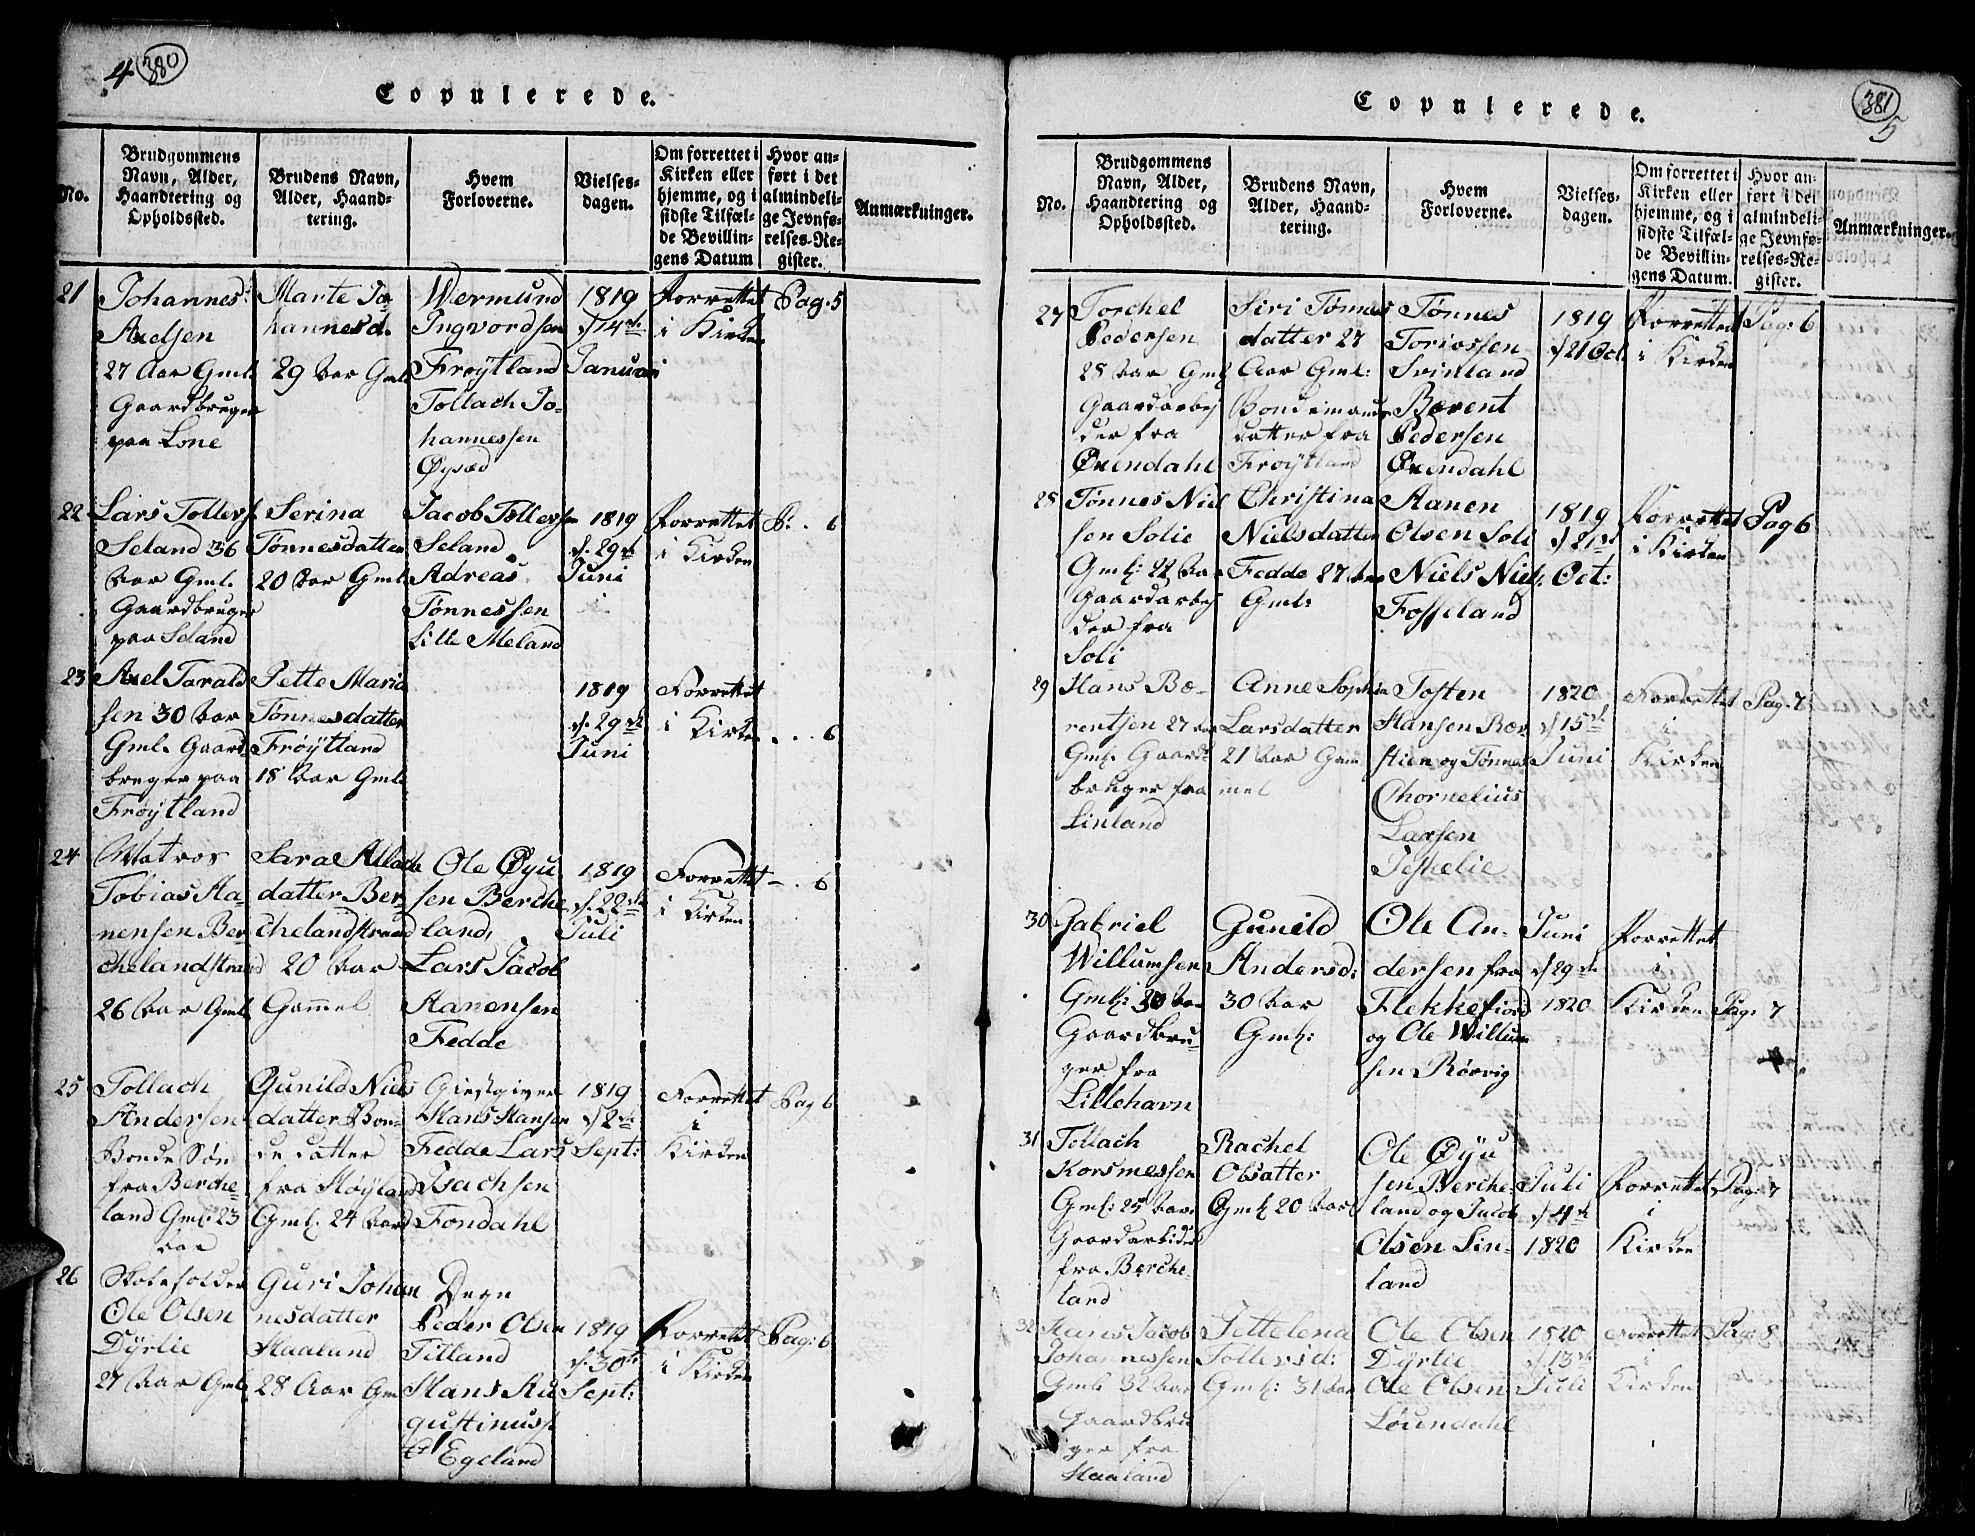 4 380
Copulerede.
No.
Brudgommens
Navn, Alder,
Haandtering og
Opholdssted.
Brudens Navn,
Alder, Haand-
tering.
Hvem
Forloverne.
Vielses-
dagen.
Om forrettet i
Kirken eller
hjemme, og i
sidste Tilfæl-
de Bevillin-
gens Datum
Hvor an-
ført i det
almindeli-
ge Jevnfø-
relses-Re-
gister.
Anmærkninger.
21
Johannes
Axelsen
27 Aar Gml.
Gaardbruger
paa Lone
Marite Jo
hannesd.
29 Aar Gml
Wermund
Ingvordsen
Frøÿtland
Tollach Jo-
hannessen
Øysæd
1819
d 14de
Januari
Forrettet
i Kirken
Pag: 5
22
Lars Tollefs
Seland 36
Aar Gml.
Gaardbruger
paa Seland
Serina
Tønnesdatter
20 Aar Gml.
Jacob Tollefsen
Seland
Adreas
Tønnessen
Lille Meland
1819
d. 29de
Juni
Forrettet
i Kirken
P: . . 6
23
Axel Tarald
sen 30 Aar
Gml. Gaard
bruger paa
Frøÿtland
Jette Maria
Tønnesdatter
Frøÿtland
18 Aar Gml.
1819
d. 29de
Juni
Forrettet
i Kirken
. . . 6
24
Matros
Tobias Aa-
nensen Ber-
chelandstrand
26 Aar Gml.
Sara Atlack
datter Ber-
chelandstrand
20 Aar
Gammel
Ole Øyu
sen Berche
land,
Lars Jacob
Aanensen
Fedde
1819
d. 22de
Juli
Forrettet
i Kirken
- . 6
25
Tollach
Andersen
Bonde Søn
fra Berche-
land Gml: 23
Aar
Gunild Niels
datter Bon-
de datter
fra Høyland
Gml. 24 Aar
Giestgiver
Hans Hansen
Fedde Lars
Isachsen
Fondahl
1819
d 2de
Sept:
Forrettet
i
Kirken
Pag 6
26
Skoleholder
Ole Olsen
Dÿrlie
27 Aar Gml.
Guri Johan
nesdatter
Haaland
28 Aar Gm
Degn
Peder Olsen
Tilland
Hans Au
gustinuss
Egeland
1819
d. 30te
Sept:
Forrettet
i Kirken
Pag: 6
381
5
Copulerede.
No.
Brudgommens
Navn, Alder,
Haandtering og
Opholdssted.
Brudens Navn,
Alder, Haand-
tering.
Hvem
Forloverne.
Vielses-
dagen.
Om forrettet i
Kirken eller
hjemme, og i
sidste Tilfæl-
de Bevillin-
gens Datum.
Hvor an-
ført i det
almindeli-
ge Jevnfø-
relses-Re-
gister.
Anmærkninger.
27
Torchel
Pedersen
28 Aar Gml
Gaardarbej
der fra
Øxendahl
Siri Tønnes
datter 27
Aar Gml:
Bondemands
datter fra
Frøÿtland
Tønnes
Toriossen
Svinland
Bærent
Pedersen
Øxendahl
1819
d 21 Oct.
Forrettet
i Kirken
Pag: 6
28
Tønnes Niel
sen Solie
Gml: 22 Aar
Gaardarbej
der fra
Soli
Christina
Nielsdatter
Fedde 27 Aar
Gml:
Aanen
Olsen Soli
Niels Niels.
Fosseland
1819
d 21de
Oct:
Forrettet
i Kirken
Pag 6
29
Hans Bæ-
rentsen 27 Aar
Gml. Gaard
bruger fra
Linland
Anne Sophia
Larsdatter
21 Aar Gam
mel
Tosten
Hansen Ræv
stien og Tønnes
Chornelius
Larsen
Teshelie
1820
d 15de
Juni
Forrettet
i
Kirken
Pag: 7
30
Gabriel
Willumsen
Gml: 30 Aar
Gaardbru-
ger fra
Lillehavn
Gunild
Andersd:
30 Aar
Gml:
Ole An-
dersen fra
Flekkefiord
og Ole Willum
sen Rørvig
Juni
d 29de
1820
Forrettet
i
Kirken
Pag: 7
31
Tollach
Korsmessen
Gml: 25 Aar
Gaardarbider
fra Berche-
land
Rachel
Olsdatter
Gml 20 Aar
Ole Øyu
sen Berche-
land og Jacob
Olsen Lin-
land
Juli
d 4de
1820
Forrettet
i
Kirken
Pag: 7
32
Hans Jacob
Johannessen
Gml 32 Aar
Gaardbru
ger fra
Haaland
Jettelena
Tollevsd:
Gml: 31 Aar
Ole Olsen
Dÿrlie
Ole Olsen
Løundahl
1820
d 13de
Juli
Forrettet
i
Kirken
Pag: 8